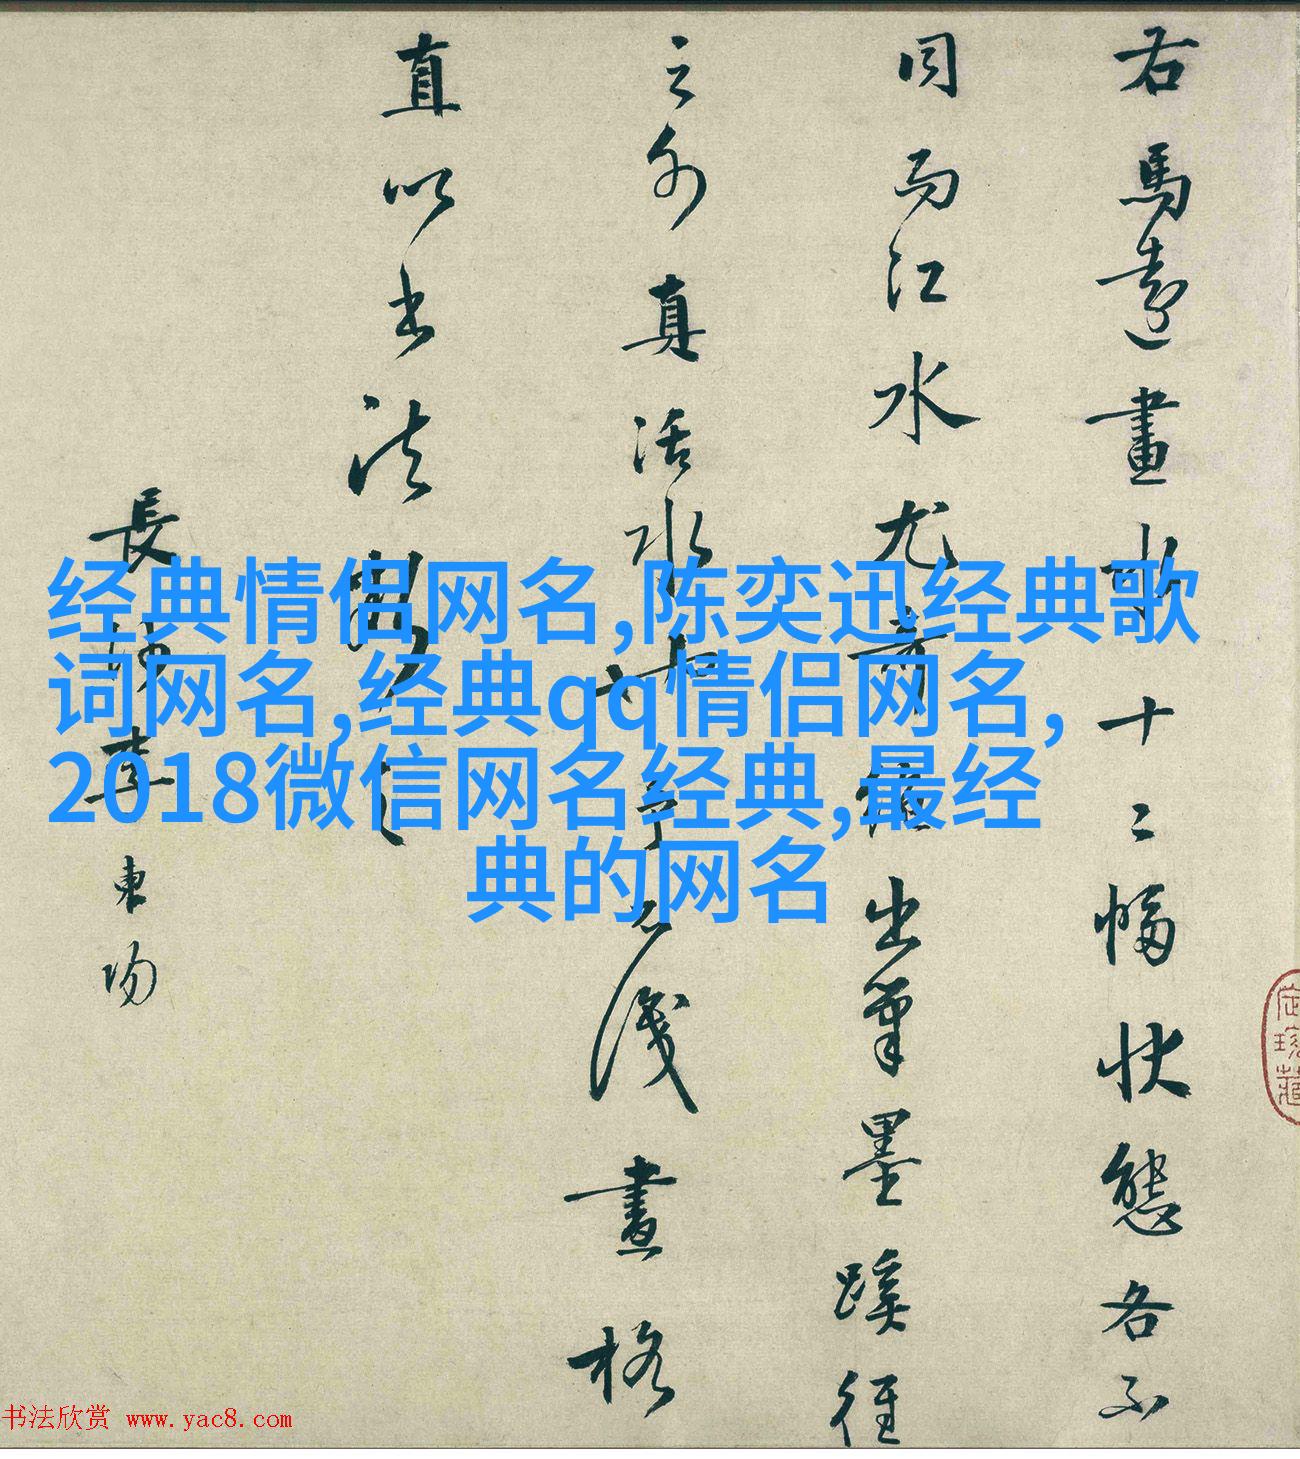 右馬遠畫水十二幅狀態各不
同而江水尤奇絕出筆墨蹊徑
之外真活水也予不識畫格
直以書法斷之
長沙李東陽
经典情侣网名,陈奕迅经典歌
词网名,经典qq情侣网名,
2018微信网名经典,最经
典的网名
书法欣赏 www.yac8.com